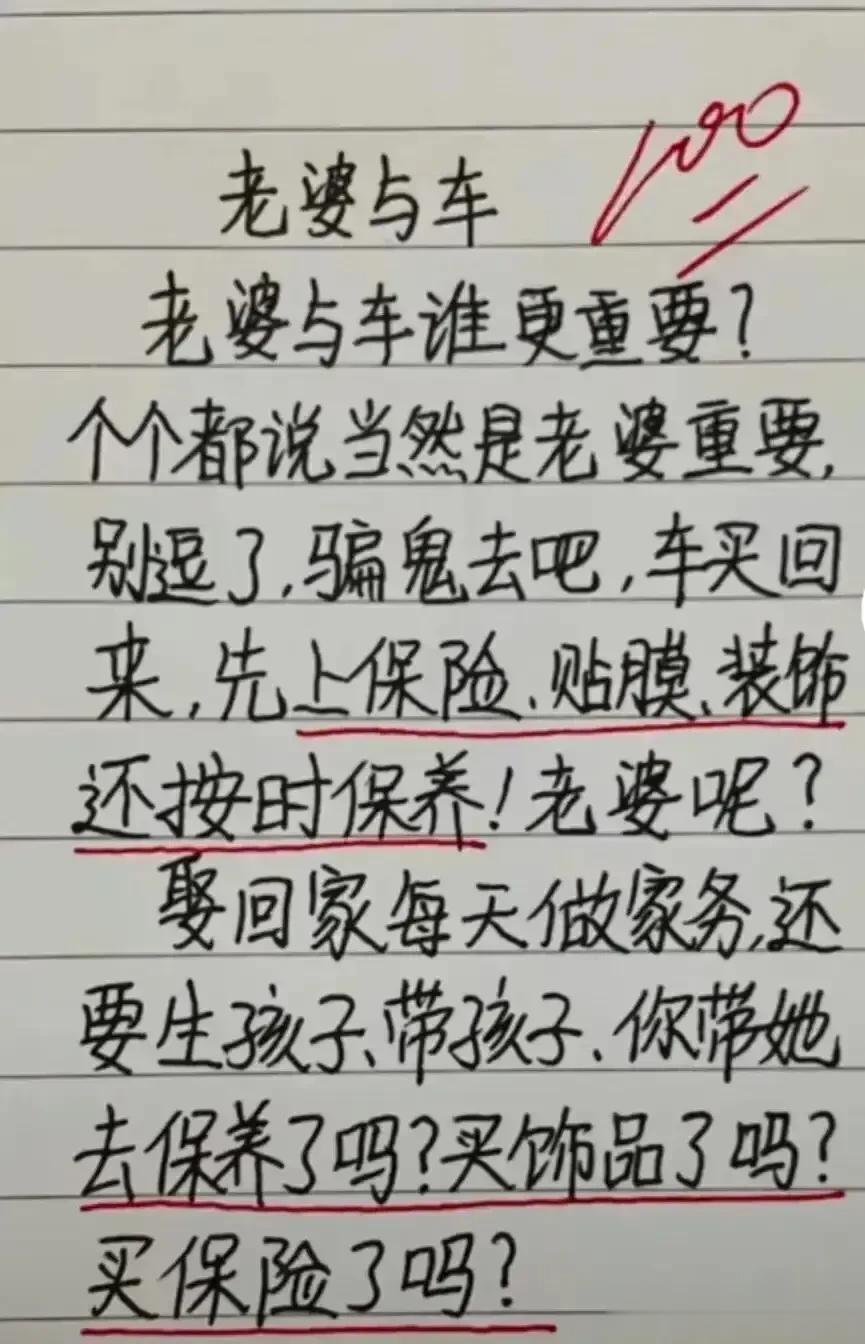 100
老婆与车
老婆与车谁更重要?
个个都说当然是老婆重要,
别逗了,骗鬼去吧,车买回
来,先上保险、贴膜、装饰
还按时保养!老婆呢?
娶回家每天做家务,还
要生孩子、带孩子、你带她
去保养了吗?买饰品了吗?
买保险了吗?